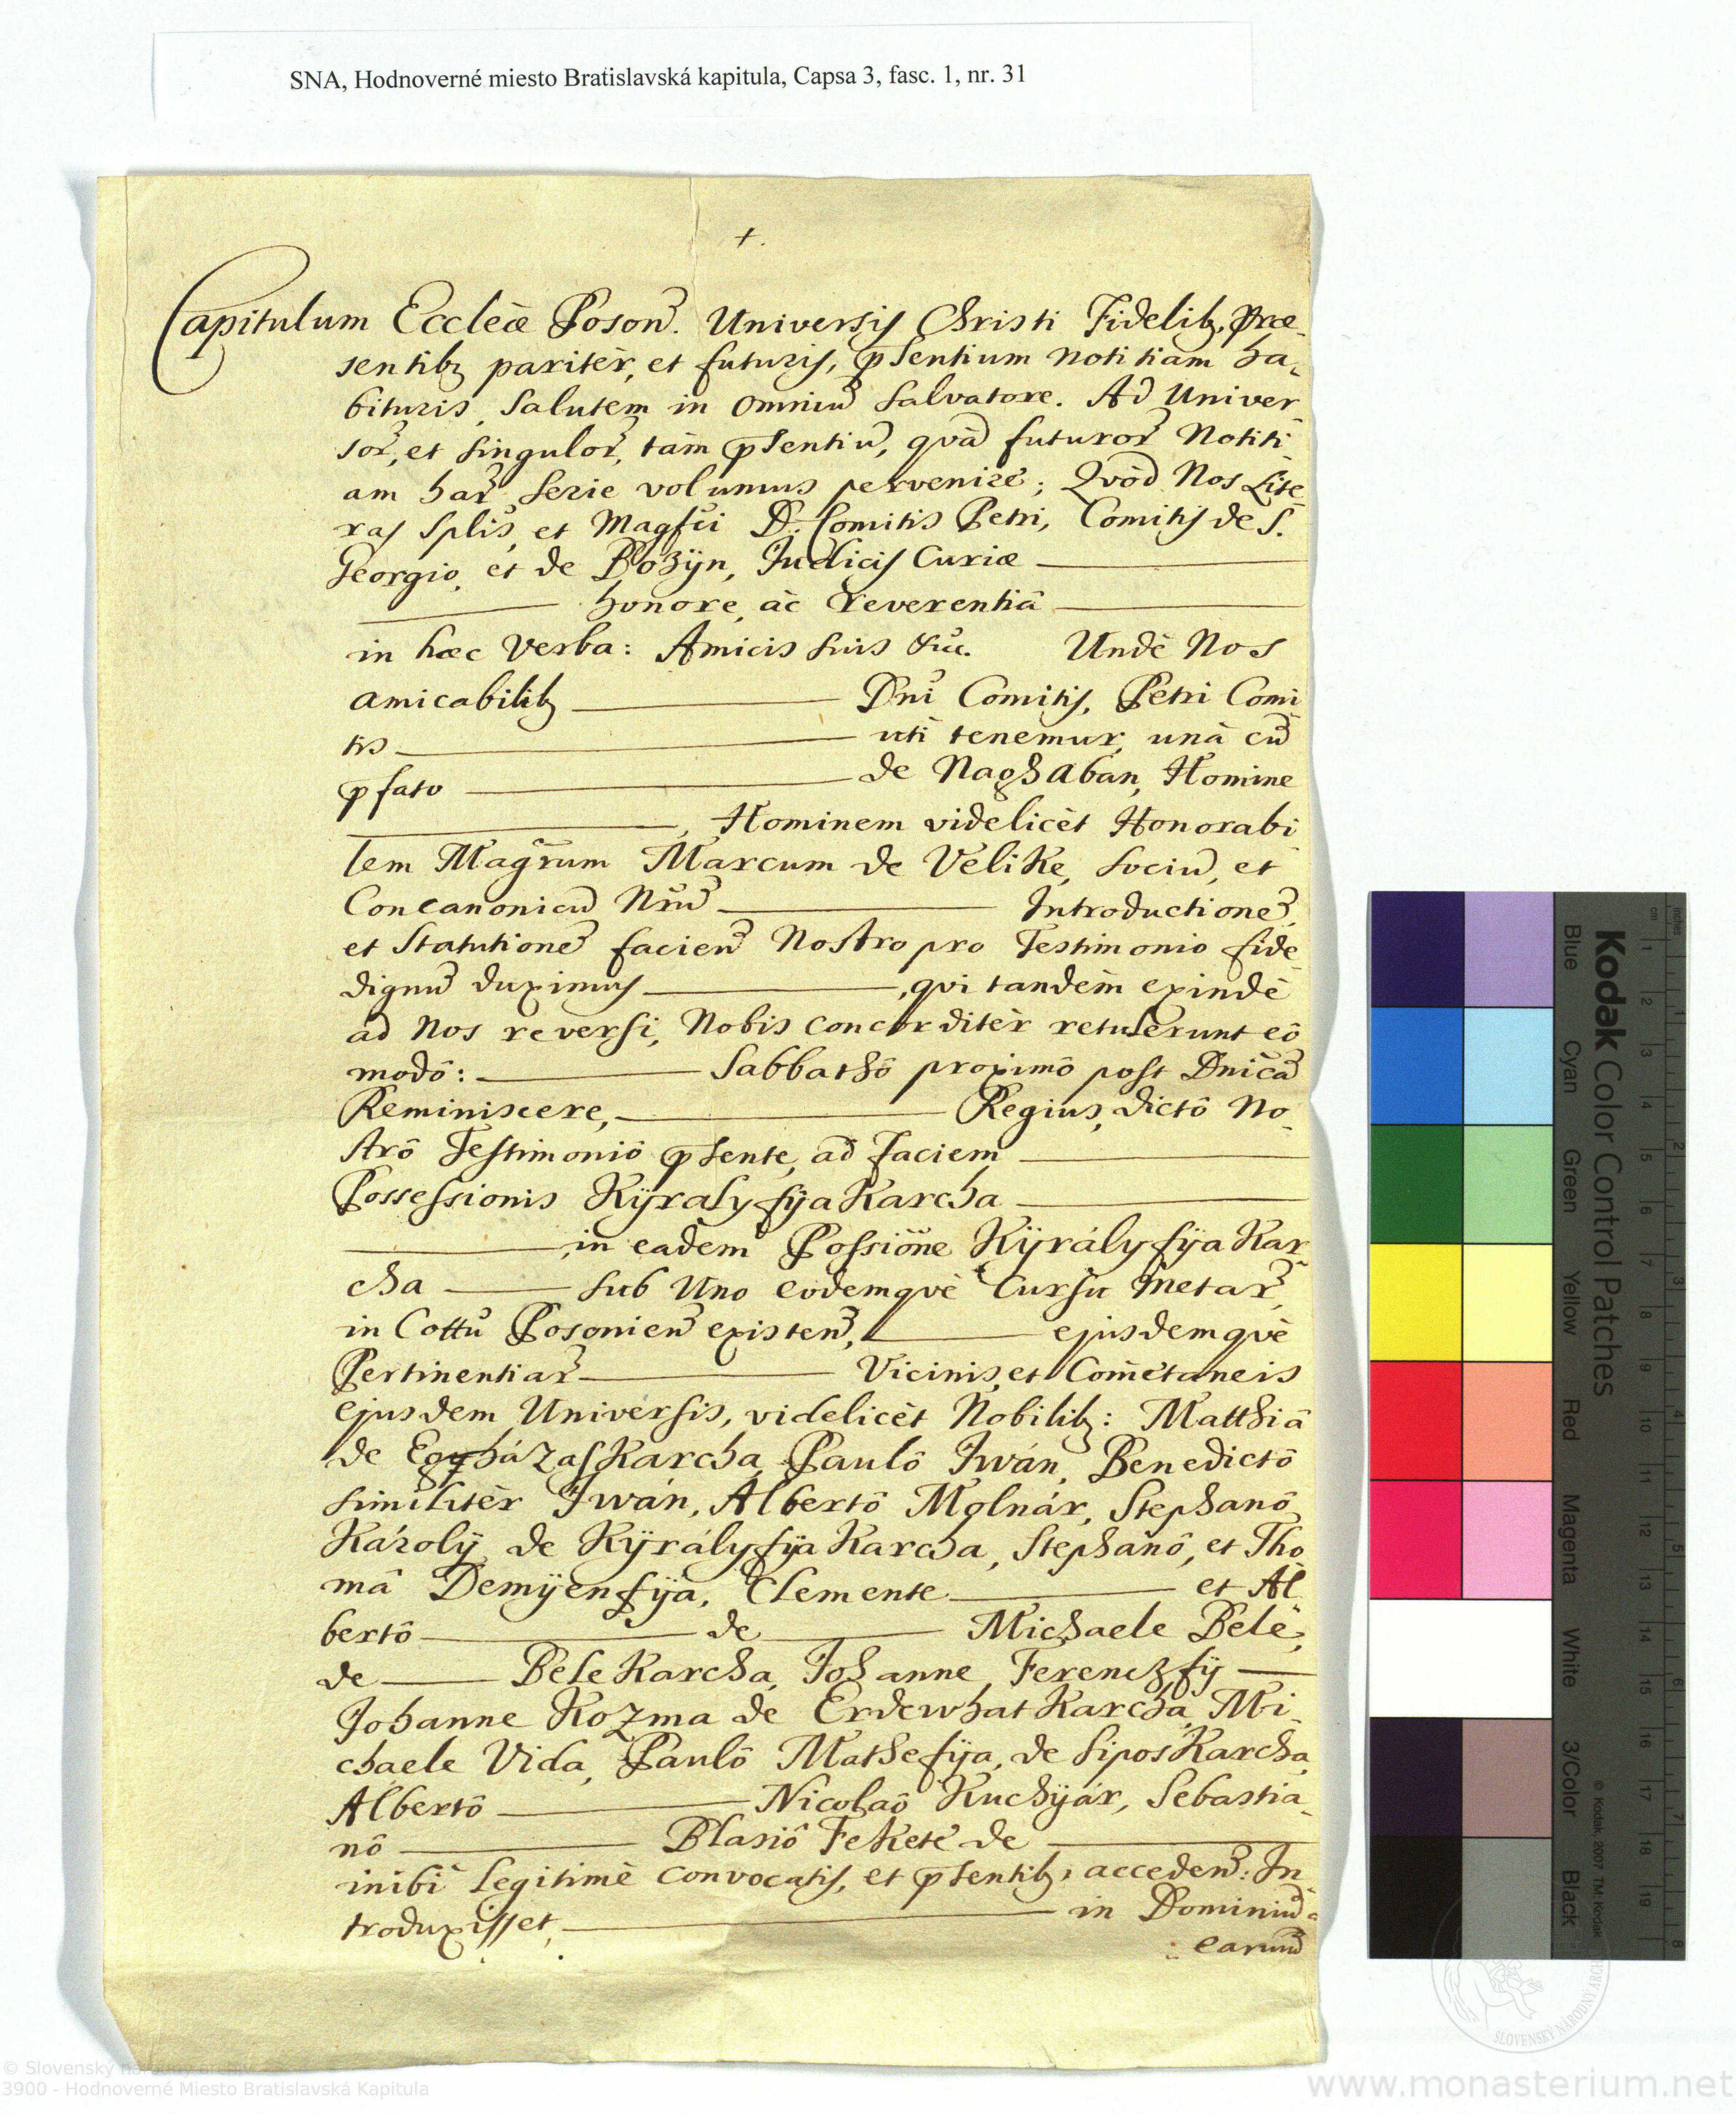 SNA, Hodnoverné miesto Bratislavská kapitula, Capsa 3, fasc. 1, nr. 31
+.
Capitulum Eccleæ Poson. Universis Christi Fidelibq, Præ-
sentibq paritèr, et futuris, pſentium notitiam ha-
bituris, Salutem in omniu Salvatore. Ad Univer-
sor, et singulor, tàm pſentiu, qvà futuror Notiti-
am har serie volumus pervenire; Qvòd Nos Lite-
ras Splis, et Magfci D. Comitis Petri, Comitis de S.
Georgio, et de Bozÿn, Judicis Curiæ ———
——— honore, ác reverentiâ ———
in hæc verba: Amicis suis &c. Undè Nos
amicabilibq ——— Dni Comitis, Petri Comi-
tis ——— uti tenemur, unà cu
pfato ——— de NaghAban, Homine
———, Hominem videlicèt Honorabi-
lem Magrum Marcum de Velike, Sociu, et
Concanonicu Nru ——— Introductione,
et Statutione facien Nostro pro Testimonio fide-
dignu duximus ———, qui tandèm exindè
ad Nos reversi, Nobis concorditèr retulerunt eô
modô: ——— Sabbathô proximô post Dnica
Reminiscere, ——— Regius, dictô No-
strô Testimoniô pſente, ad faciem ———
Possessionis KÿralyfÿaKarcha ———
———, in eadem Possione KÿrályfÿaKar-
cha ——— sub Uno eodemqvè Cursu Metar,
in Cottu Posonien existen, ——— ejusdemqvè
Pertinentiar ——— Vicinis, et Cometaneis
ejusdem Universis, videlicèt Nobilibq: Matthiâ
de EgyházasKarcha, Paulô Iwán, Benedictô
similitèr Iwán, Albertô Molnár, Stephanô
Károlÿ de KÿrályfÿaKarcha, Stephanô, et Tho-
mâ Demÿenfÿa, Clemente ——— et Al-
bertô ——— de ——— Michaele Bele,
de ——— BeleKarcha, Johanne Ferenczfÿ ———
Johanne Kozma de ErdewhatKarcha, Mi-
chaele Vida, Paulô Mathefÿa, de SiposKarcha,
Albertô ——— Nicolaô Kuchÿár, Sebastia-
nô ——— Blasiô Fekete de ———
inibi legitimè convocatis, et pſentibq, acceden: In-
troduxisset, ——— in Dominiu
earund
Kodak Color Control Patches
Blue Cyan Green Yellow Red Magenta White 3/Color Black
© Kodak, 2007 TM: Kodak
inches 1 2 3 4 5 6 7 8
cm 1 2 3 4 5 6 7 8 9 10 11 12 13 14 15 16 17 18 19
© Slovenský národný archív
3900 - Hodnoverné Miesto Bratislavská Kapitula
www.monasterium.net